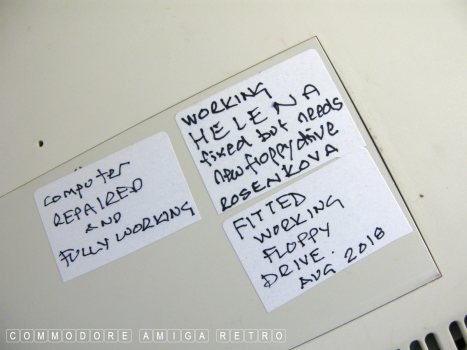 computer
REPAIRED
AND
FULLY WORKING
WORKING
HELENA
fixed but needs
new floppy drive
ROSENKOVA
FITTED
WORKING
FLOPPY
DRIVE.
AUG 2018
COMMODORE AMIGA RETRO